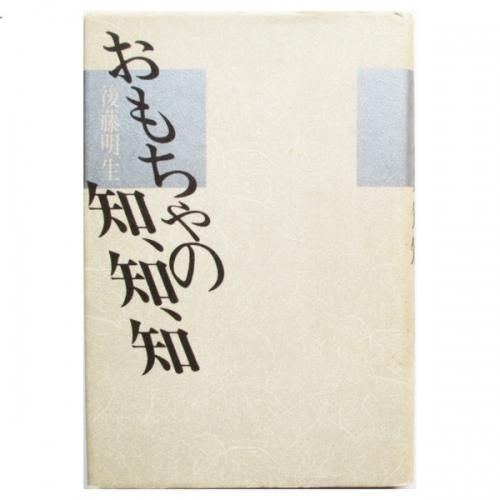 おもちゃの
知、知、知
後藤明生